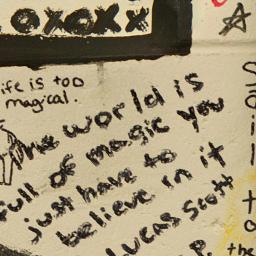 oxoxx
ife is too
magical.
The world is
full of magic you
just have to
believe in it
Lucas Scott
to
the